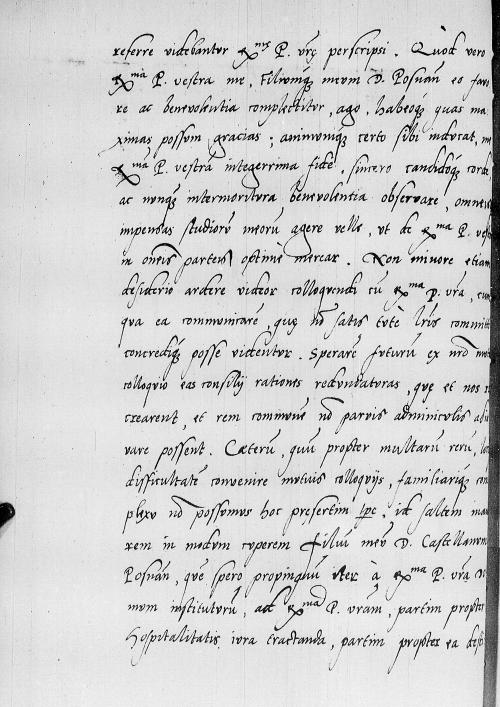 referre videbantur Exmę P. vrę perscripsi. Quod vero
Exma P. vestra me, filiumq meum D. Posnań eo favo
re ac benevolentia complectitur, ago, habeoq quas ma
ximas possum gratias; animumq certo sibi inducat, me
Exmā P. vestrā integerrima fide, sincero candidoq corde
ac nunq intermoritura benevolentia observare, omneis
impensas studiorū meorū agere velle, ut de Exma P. vest
in oneis parteis optimè merear. Non minore etiam
desiderio ardere videor colloquendi cū Exma P. vra, cum
qua ea communicarē, quę nō satis tutè lris committi
concrediq posse videntur. Sperarē futurū ex nrō mutuo
colloquio eas consilij rationes redundaturas, quę et nos r
crearent, et rem communē nō parvis adminiculis adiu
vare possent. Cæterū, quū propter multarū rerū,
difficultatē convenire mutuis colloquijs, familiariq com
plexu nō possumus hoc pręsertim tpe, id saltem maio
rem in modum cuperem filiū meū D. Castellanum
Posnań, quē spero propinquū iter à Exma P. vra
mum instituturū, ad Exmā P. vram, partim propter
hospitalitatis iura tractanda, partim propter ea